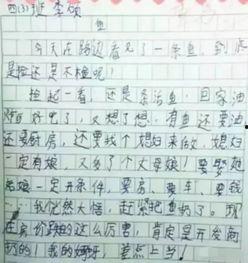 四(3)班 李颂
鱼
今天在路边看见了一条鱼，到底
是捡还是不捡呢！
捡起一看，还是条活鱼，回家油
炸好吃了，又想了想，有鱼还要油，
还要厨房，还要找个媳妇来做，媳妇
一定有娘，又多了个丈母娘！要娶
老娘一定开条件，要房、要车、要钱
……我恍然大悟，赶紧把鱼扔了。现
在房价涨的这么厉害，肯定是开发商
扔的！我的妈呀，差点上当！